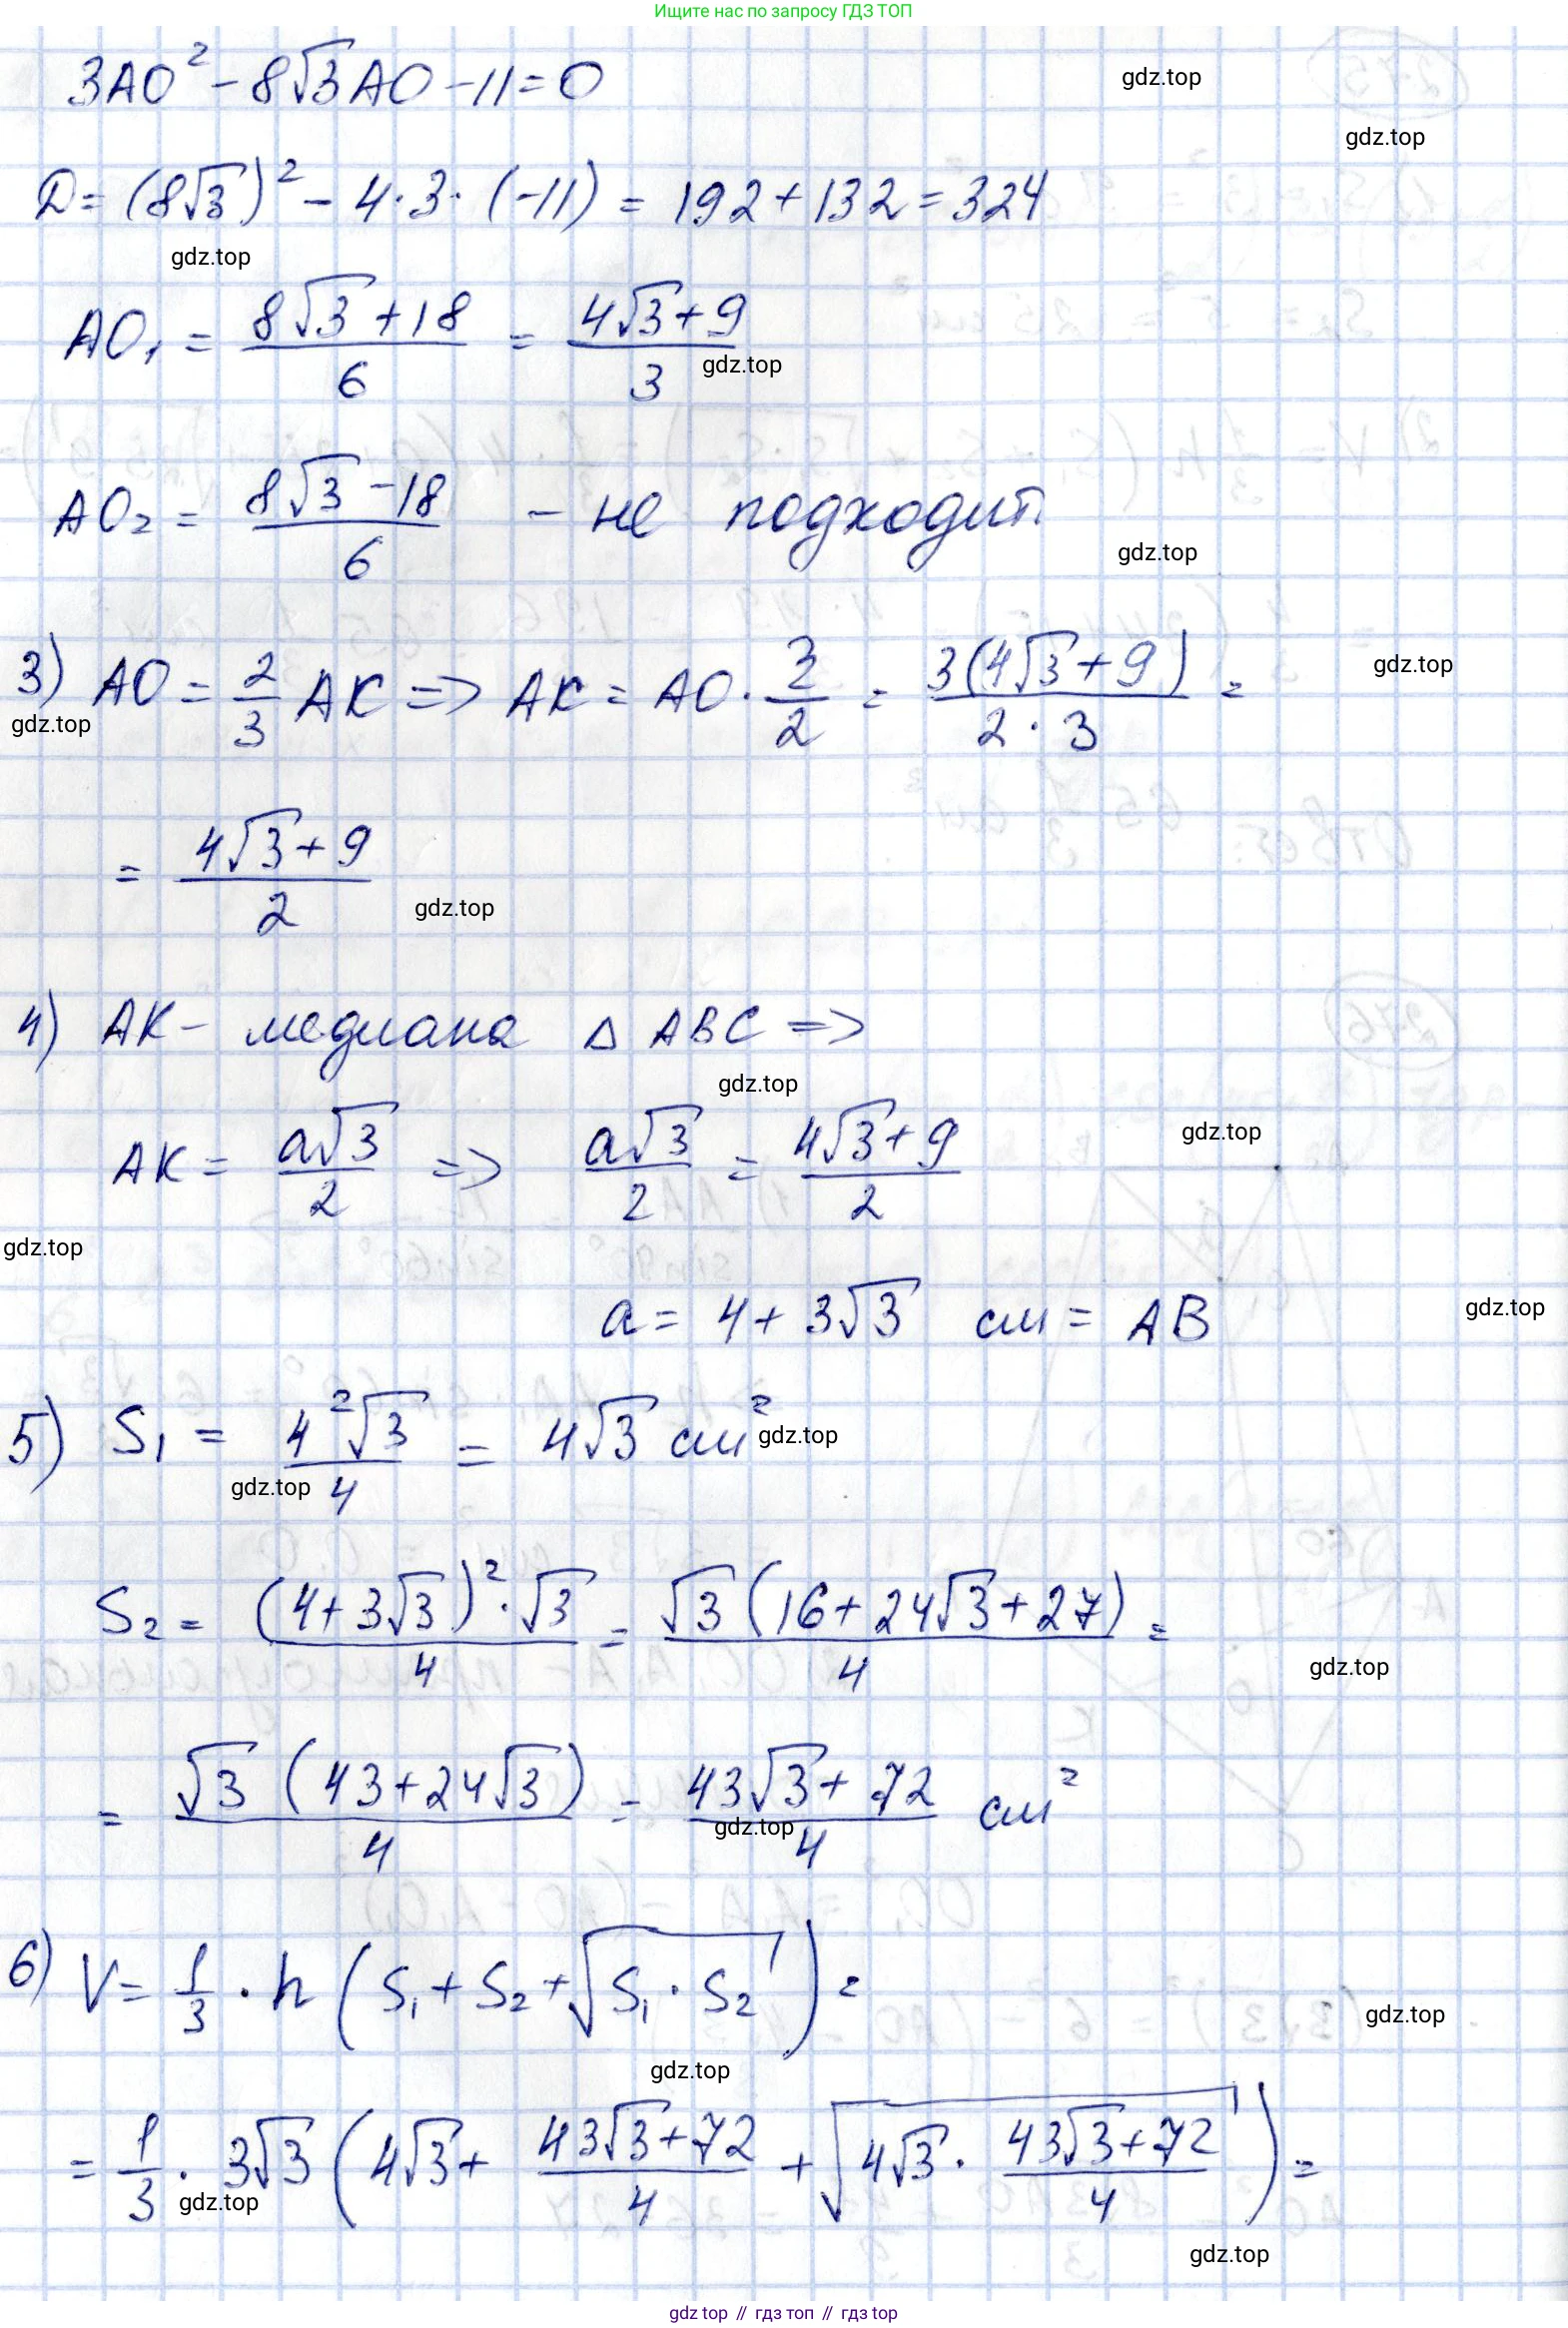 Ищите нас по запросу ГДЗ ТОП
3AO² - 8√3 AO - 11 = 0
gdz.top
gdz.top
D = (8√3)² - 4·3·(-11) = 192 + 132 = 324
gdz.top
AO₁ = (8√3 + 18)/6 = (4√3 + 9)/3
gdz.top
AO₂ = (8√3 - 18)/6 - не подходит.
gdz.top
3) AO = 2/3 AK => AK = AO · 3/2 = 3(4√3 + 9)/(2 · 3) =
gdz.top
gdz.top
= (4√3 + 9)/2
gdz.top
4) AK - медиана △ ABC =>
gdz.top
AK = a√3/2 => a√3/2 = (4√3 + 9)/2
gdz.top
gdz.top
a = 4 + 3√3 см = AB
gdz.top
5) S₁ = 4²√3/4 = 4√3 см²
gdz.top
gdz.top
S₂ = (4 + 3√3)²·√3/4 = √3(16 + 24√3 + 27)/4 =
gdz.top
= √3(43 + 24√3)/4 = (43√3 + 72)/4 см²
gdz.top
6) V = 1/3 · h (S₁ + S₂ + √(S₁ · S₂)) =
gdz.top
gdz.top
= 1/3 · 3√3 (4√3 + (43√3 + 72)/4 + √(4√3 · (43√3 + 72)/4)) =
gdz.top
gdz.top
gdz top // гдз топ // gdz top